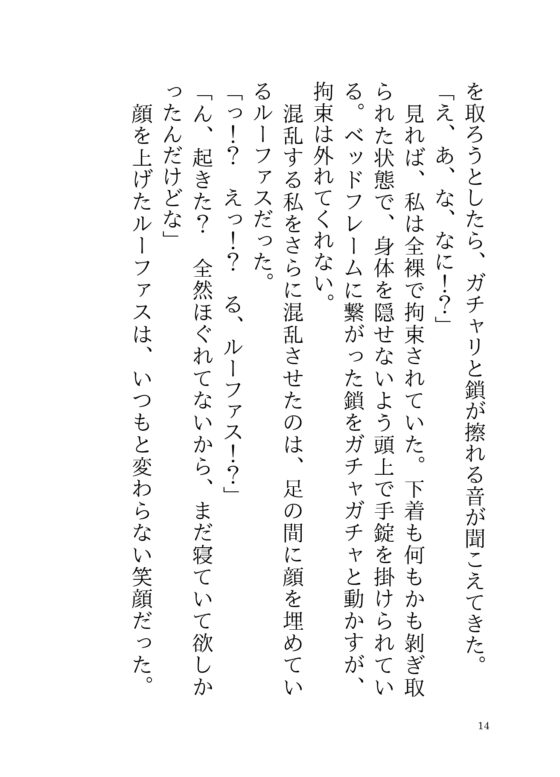 を取ろうとしたら、ガチャリと鎖が擦れる音が聞こえてきた。
「え、あ、な、なに！？」
　見れば、私は全裸で拘束されていた。下着も何もかも剝ぎ取
られた状態で、身体を隠せないよう頭上で手錠を掛けられてい
る。ベッドフレームに繋がった鎖をガチャガチャと動かすが、
拘束は外れてくれない。
　混乱する私をさらに混乱させたのは、足の間に顔を埋めてい
るルーファスだった。
「っ！？　えっ！？　る、ルーファス！？」
「ん、起きた？　全然ほぐれてないから、まだ寝ていて欲しか
ったんだけどな」
　顔を上げたルーファスは、いつもと変わらない笑顔だった。
14